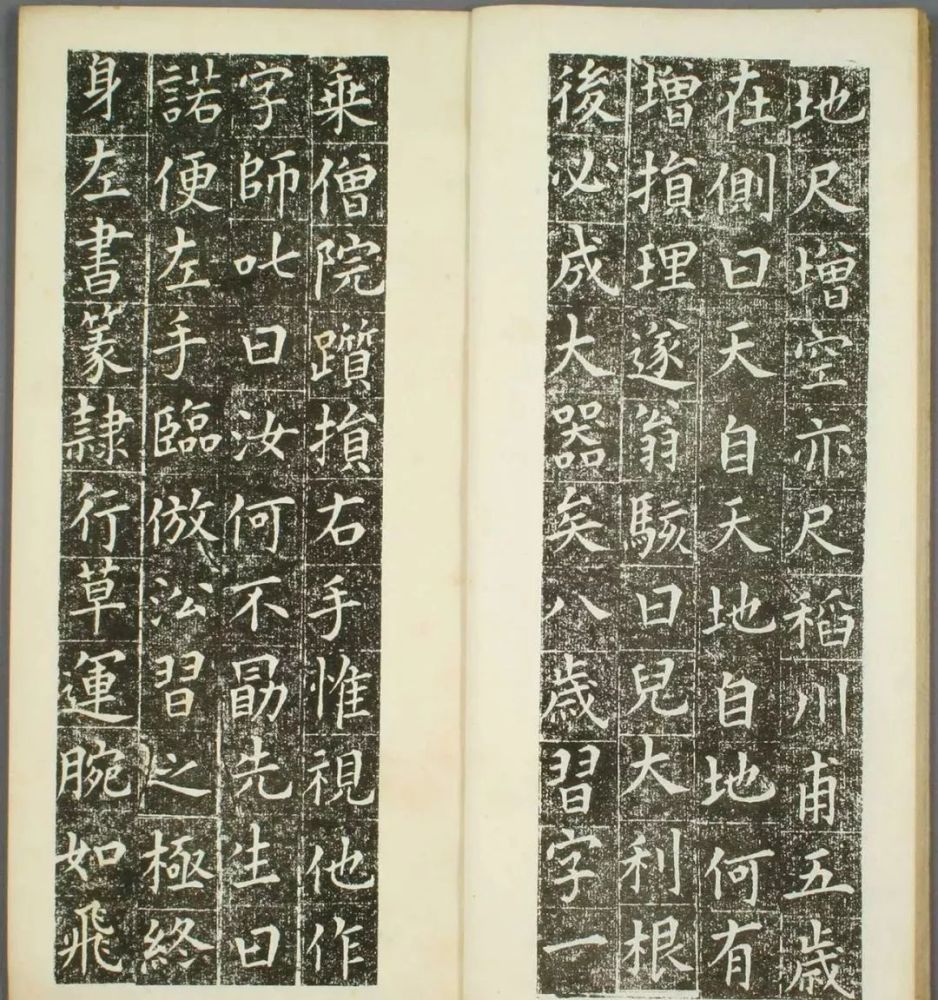 地尺增空亦尺稻川甫五歲
在側曰天自天地自地何有
增損理遂翁駭曰兒大利根
後必成大器矣八歲習字一
乘僧院躓損右手惟視他作
字師叱曰汝何不勗先生曰
諾便左手臨倣㳂習之極終
身左書篆隸行草運腕如飛